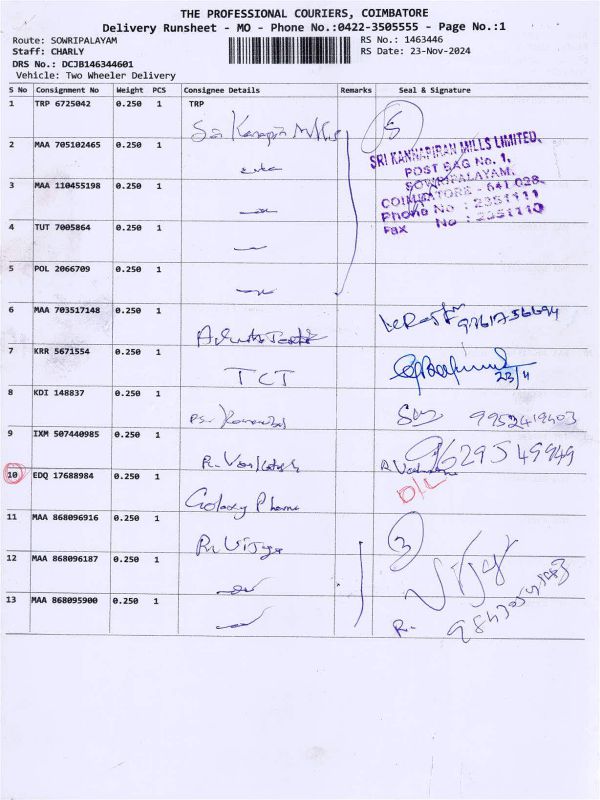 THE PROFESSIONAL COURIERS, COIMBATORE
Delivery Runsheet - MO - Phone No.:0422-3505555 - Page No.:1
Route: SOWRIPALAYAM
RS No.: 1463446
Staff: CHARLY
RS Date: 23-Nov-2024
DRS No.: DCJB146344601
Vehicle: Two Wheeler Delivery
S No Consignment No Weight PCS Consignee Details Remarks Seal & Signature
1 TRP 6725042 0.250 1 TRP
5
2 MAA 705102465 0.250 1
SRI KANNAPIRAN MILLS LIMITED,
POST BAG No. 1,
SOWRIPALAYAM,
COIMBATORE - 641 028.
Phone No : 2351111
Fax No : 2351110
3 MAA 110455198 0.250 1
4 TUT 7005864 0.250 1
5 POL 2066709 0.250 1
6 MAA 703517148 0.250 1
7 KRR 5671554 0.250 1
TCT
23/11
8 KDI 148837 0.250 1
9952419403
9 IXM 507440985 0.250 1
R. Venkatesh
9629549949
10 EDQ 17688984 0.250 1
Galaxy Pharma
D/L
11 MAA 868096916 0.250 1
R. Vijya
3
12 MAA 868096187 0.250 1
13 MAA 868095900 0.250 1
R.